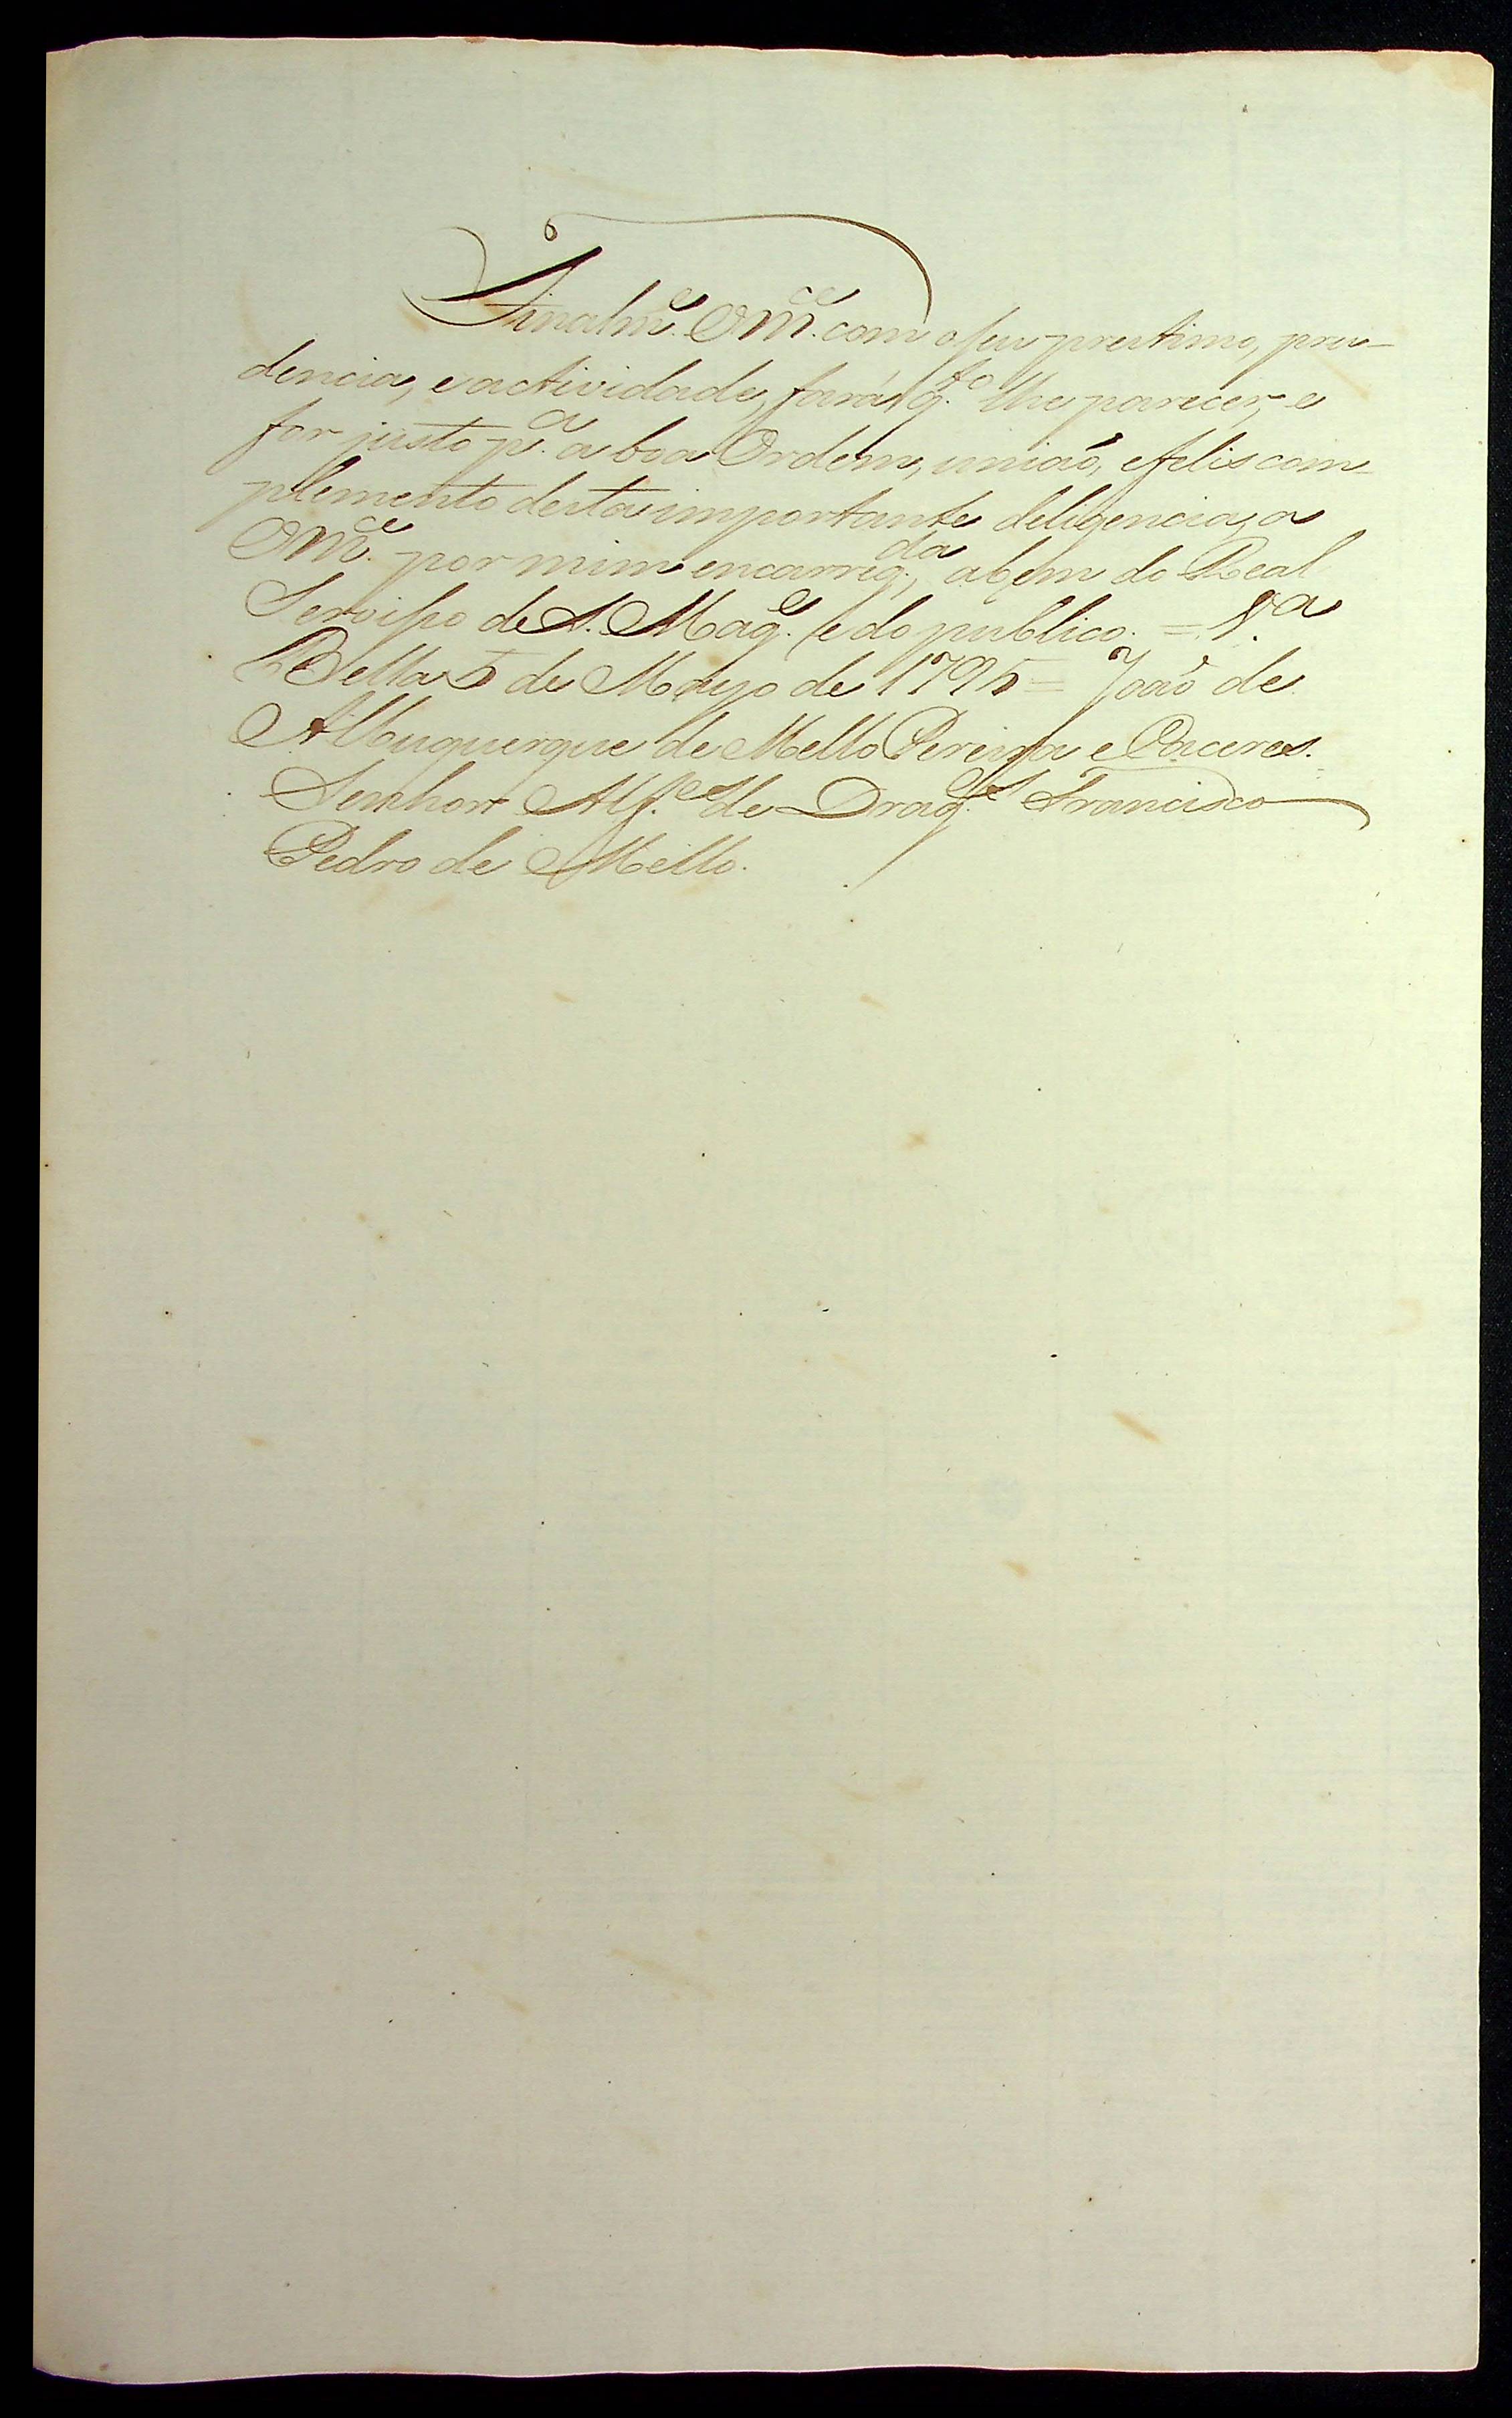 Finalm.e Vm.ce com o seu prestimo, pru-
dencia, e actividade, fará q.to lhe parecer, e
for justo p.a a boa Ordem, união, e felis com
plemento desta importante deligencia, a
Vm.ce por mim encarreg.da, a bem do Real
Serviço de S. Mag.e e do publico. = V.a
Bella 5 de Mayo de 1795 = João de
Albuquerque de Mello Pereira e Caceres.
Senhor Alf.es de Drag.es Francisco
Pedro de Mello.